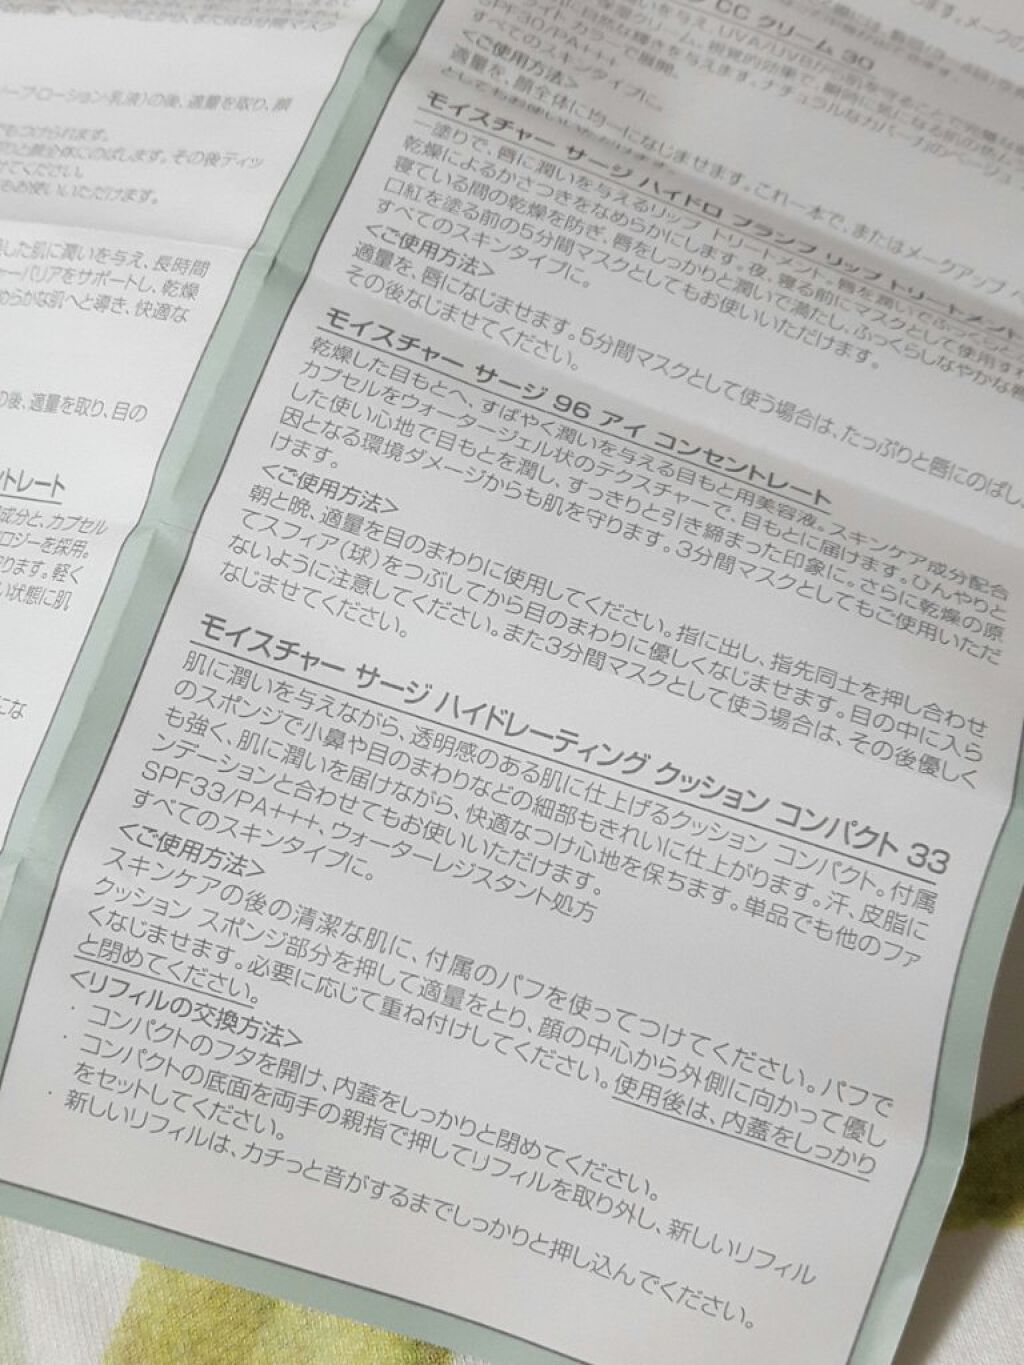 ープローション乳液)の後、適量を取り、顔
もつけられます。
と顔全体にのばします。その後ティッ
せてください。
もお使いいただけます。
した肌に潤いを与え、長時間
ャーバリアをサポートし、乾燥
めらかな肌へと導き、快適な
の後、適量を取り、目の
ントレート
成分と、カプセル
ロジーを採用。
ります。軽く
い状態に肌
CC クリーム 30
SPF30/PA+++
すべてのスキンタイプに。
<ご使用方法>
適量を、顔全体に均一になじませます。これ一本で、またはメークアップ
モイスチャー サージ ハイドロ プランプ リップ トリートメント
一塗りで、唇に潤いを与えるリップ トリートメント。唇を潤いで
乾燥によるかさつきをなめらかにします。夜、寝る前にマスクとして使用すれ
寝ている間の乾燥を防ぎ、唇をしっかりと潤いで満たし、ふっくらしなやかな唇
口紅を塗る前の5分間マスクとしてもお使いいただけます。
すべてのスキンタイプに。
<ご使用方法>
適量を、唇になじませます。5分間マスクとして使う場合は、たっぷりと唇にのばし、
その後なじませてください。
モイスチャー サージ 96 アイ コンセントレート
乾燥した目もとへ、すばやく潤いを与える目もと用美容液。スキンケア成分配合
カプセルをウォータージェル状のテクスチャーで、目もとに届けます。ひんやりと
した使い心地で目もとを潤し、すっきりと引き締まった印象に。さらに乾燥の原
因となる環境ダメージからも肌を守ります。3分間マスクとしてもご使用いただ
けます。
<ご使用方法>
朝と晩、適量を目のまわりに使用してください。指に出し、指先同士を押し合わせ
てスフィア(球)をつぶしてから目のまわりに優しくなじませます。目の中に入ら
ないように注意してください。また3分間マスクとして使う場合は、その後優しく
なじませてください。
モイスチャー サージ ハイドレーティング クッション コンパクト 33
肌に潤いを与えながら、透明感のある肌に仕上げるクッション コンパクト。付属
のスポンジで小鼻や目のまわりなどの細部もきれいに仕上がります。汗、皮脂に
も強く、肌に潤いを届けながら、快適なつけ心地を保ちます。単品でも他のファ
ンデーションと合わせてもお使いいただけます。
SPF33/PA+++、ウォーターレジスタント処方
すべてのスキンタイプに。
<ご使用方法>
スキンケアの後の清潔な肌に、付属のパフを使ってつけてください。パフで
クッション スポンジ部分を押して適量をとり、顔の中心から外側に向かって優し
くなじませます。必要に応じて重ね付けしてください。使用後は、内蓋をしっかり
と閉めてください。
<リフィルの交換方法>
・ コンパクトのフタを開け、内蓋をしっかりと閉めてください。
・ コンパクトの底面を両手の親指で押してリフィルを取り外し、新しいリフィル
をセットしてください。
・ 新しいリフィルは、カチっと音がするまでしっかりと押し込んでください。